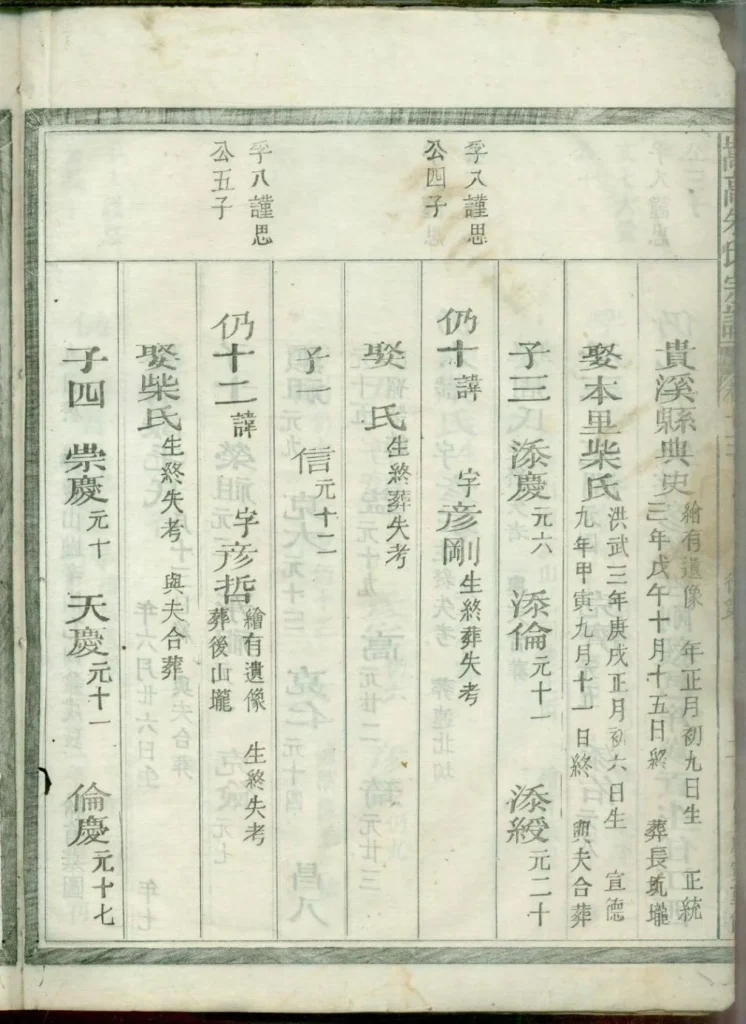 貴溪縣典史 繪有遺像 年正月初九日生 正統
三年戊午十月十五日終 葬長坑壠
娶本里柴氏 洪武三年庚戌正月初六日生 宣德
九年甲寅九月十一日終 與夫合葬
子三 添慶 元六 添倫 元十一 添綬 元二十
孚八謹思
公四子
仍十 諱 字彦剛 生終葬失考
娶 氏 生終葬失考
子一 信 元十二
孚八謹思
公五子
仍十二 諱 字彦哲 繪有遺像 生終失考
葬後山壠
娶柴氏 生終失考 與夫合葬
子四 崇慶 元十 天慶 元十一 倫慶 元十七